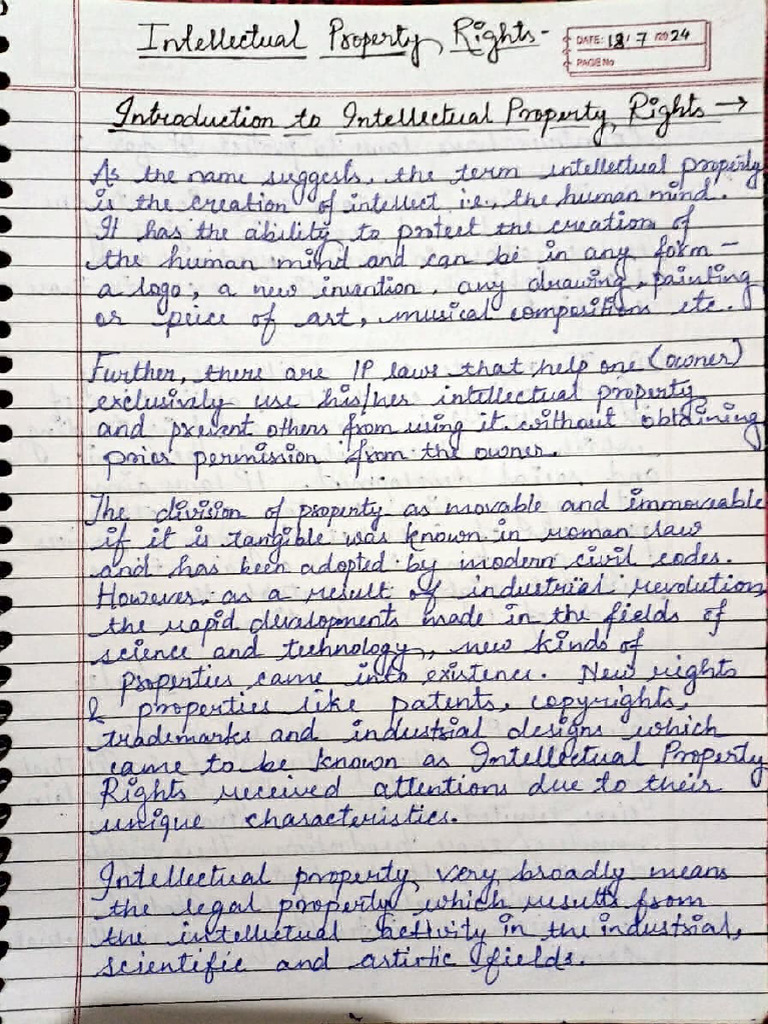 Intellectual Property Rights-
DATE: 18/7/2024
PAGE No
Introduction to Intellectual Property Rights →
As the name suggests, the term intellectual property
is the creation of intellect i.e., the human mind.
It has the ability to protect the creation of
the human mind and can be in any form -
a logo, a new invention, any drawing, painting
or peice of art, musical compositions etc.
Further, there are IP laws that help one (owner)
exclusively use his/her intellectual property
and prevent others from using it without obtaining
prior permission from the owner.
The division of property as movable and immoveable
if it is tangible was known in roman law
and has been adopted by modern civil codes.
However, as a result of industrial revolution
the rapid developments made in the fields of
science and technology, new kinds of
properties came into existence. New rights
& properties like patents, copyrights,
trademarks and industrial designs which
came to be known as Intellectual Property
Rights received attentions due to their
unique characteristics.
Intellectual property, very broadly means
the legal property which results from
the intellectual activity in the industrial,
scientific and artistic fields.